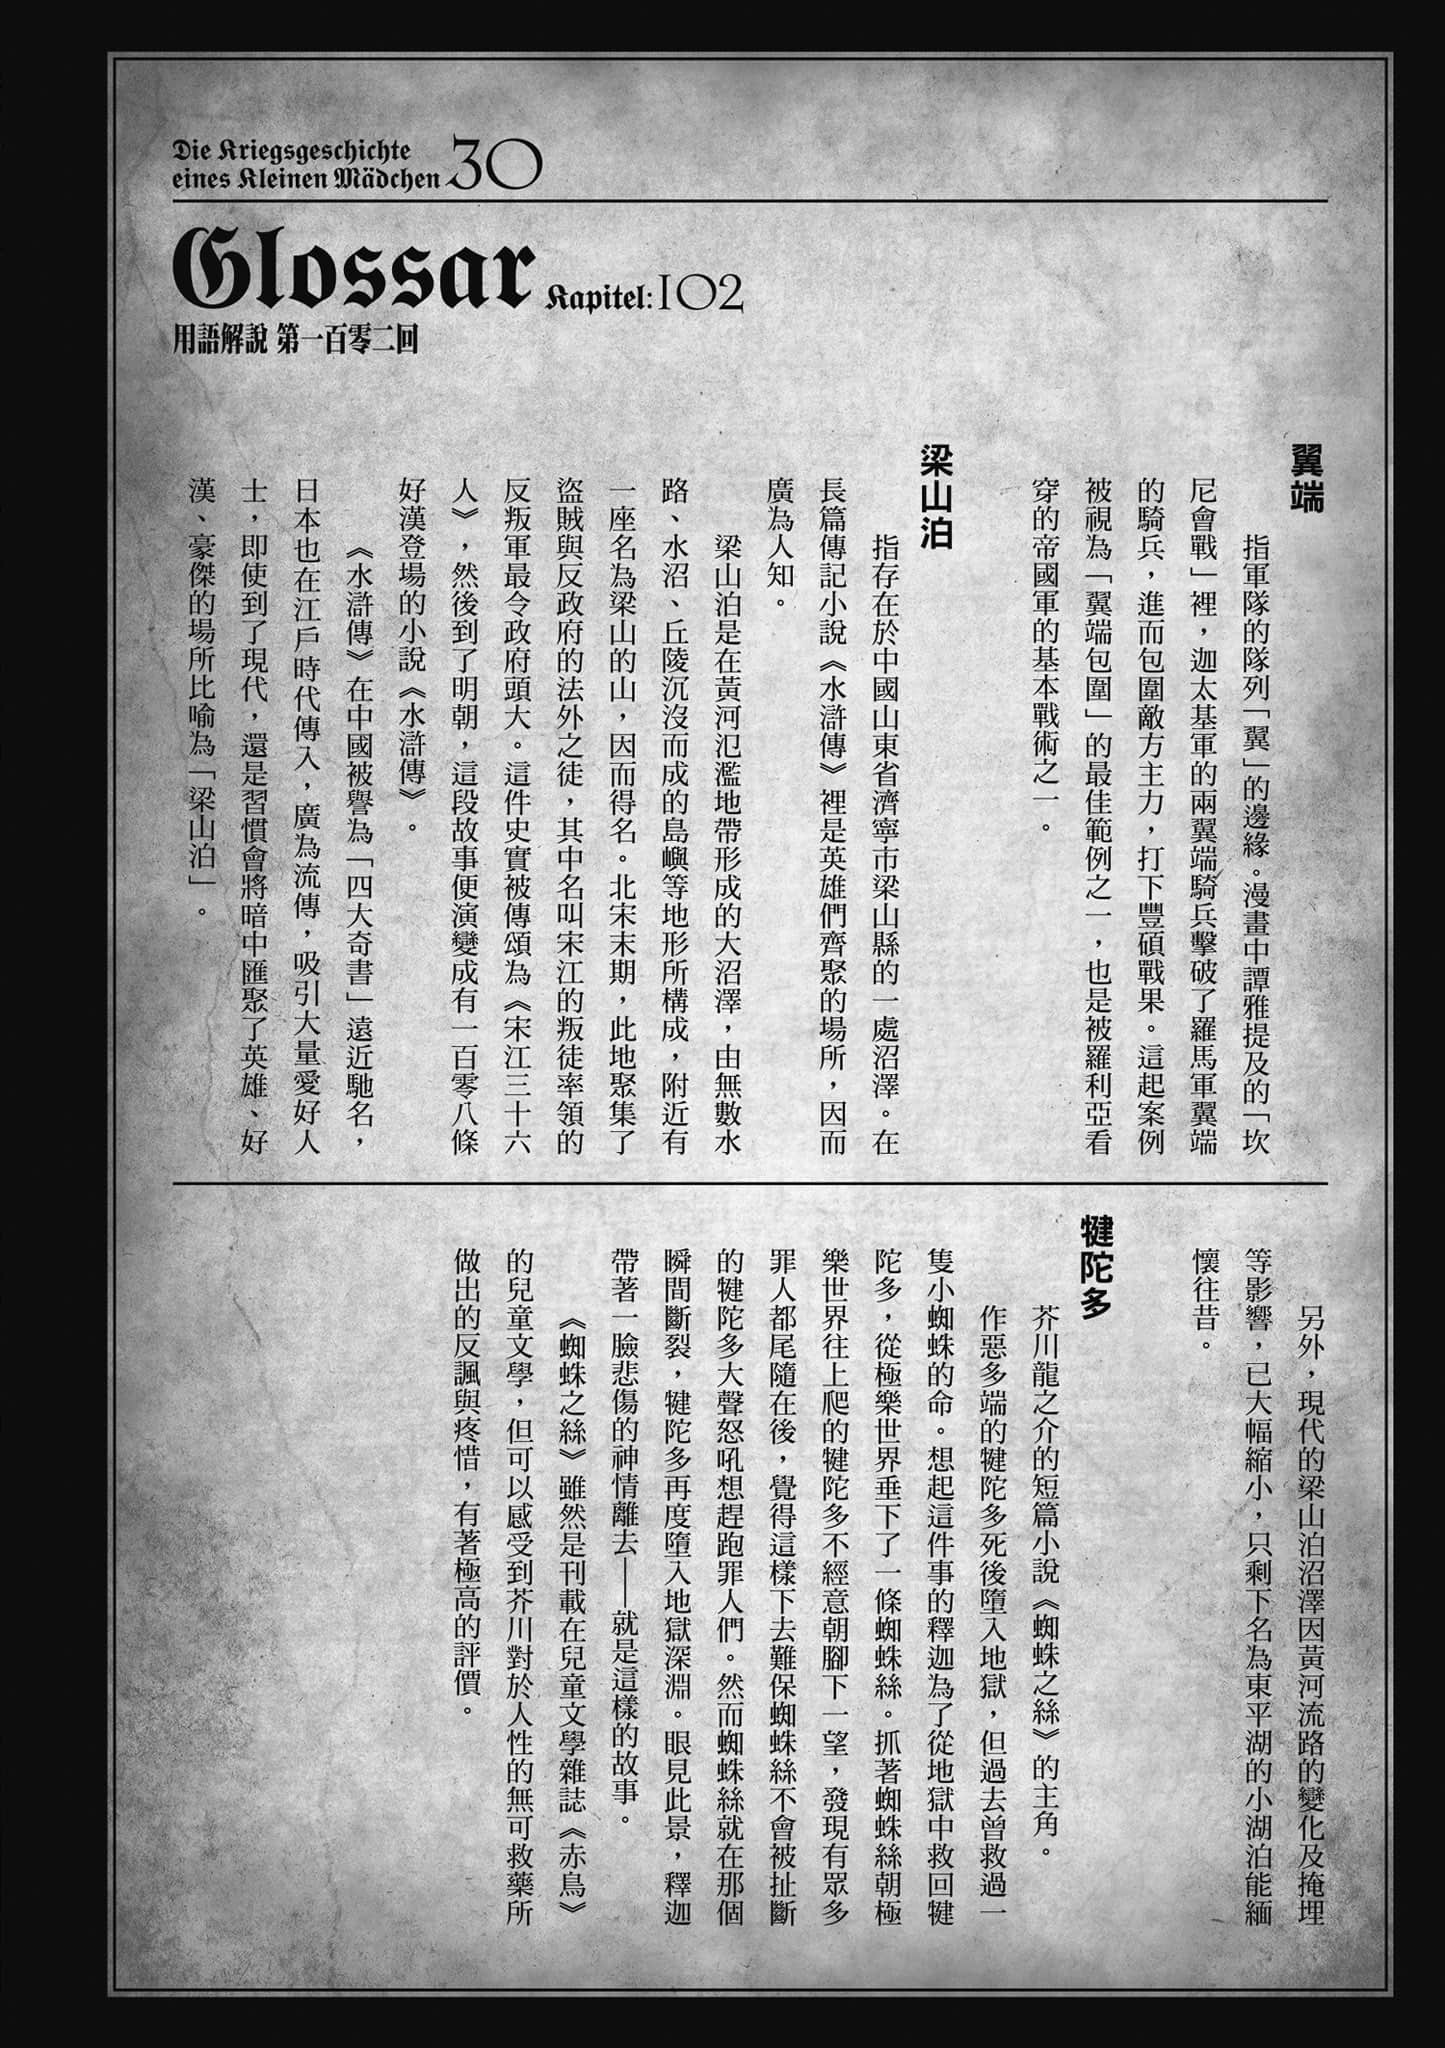 Die Kriegsgeschichte
eines Kleinen Mädchen 30
Glossar Kapitel:102
用語解說 第一百零二回
翼端
指軍隊的隊列「翼」的邊緣。漫畫中譚雅提及的「坎
尼會戰」裡，迦太基軍的兩翼端騎兵擊破了羅馬軍翼端
的騎兵，進而包圍敵方主力，打下豐碩戰果。這起案例
被視為「翼端包圍」的最佳範例之一，也是被羅利亞看
穿的帝國軍的基本戰術之一。
梁山泊
指存在於中國山東省濟寧市梁山縣的一處沼澤。在
長篇傳記小說《水滸傳》裡是英雄們齊聚的場所，因而
廣為人知。
梁山泊是在黃河氾濫地帶形成的大沼澤，由無數水
路、水沼、丘陵沉沒而成的島嶼等地形所構成，附近有
一座名為梁山的山，因而得名。北宋末期，此地聚集了
盜賊與反政府的法外之徒，其中名叫宋江的叛徒率領的
反叛軍最令政府頭大。這件史實被傳頌為《宋江三十六
人》，然後到了明朝，這段故事便演變成有一百零八條
好漢登場的小說《水滸傳》。
《水滸傳》在中國被譽為「四大奇書」遠近馳名，
日本也在江戶時代傳入，廣為流傳，吸引大量愛好人
士，即使到了現代，還是習慣會將暗中匯聚了英雄、好
漢、豪傑的場所比喻為「梁山泊」。
另外，現代的梁山泊沼澤因黃河流路的變化及掩埋
等影響，已大幅縮小，只剩下名為東平湖的小湖泊能緬
懷往昔。
犍陀多
芥川龍之介的短篇小說《蜘蛛之絲》的主角。
作惡多端的犍陀多死後墮入地獄，但過去曾救過一
隻小蜘蛛的命。想起這件事的釋迦為了從地獄中救回犍
陀多，從極樂世界垂下了一條蜘蛛絲。抓著蜘蛛絲朝極
樂世界往上爬的犍陀多不經意朝腳下一望，發現有眾多
罪人都尾隨在後，覺得這樣下去難保蜘蛛絲不會被扯斷
的犍陀多大聲怒吼想趕跑罪人們。然而蜘蛛絲就在那個
瞬間斷裂，犍陀多再度墮入地獄深淵。眼見此景，釋迦
帶著一臉悲傷的神情離去——就是這樣的故事。
《蜘蛛之絲》雖然是刊載在兒童文學雜誌《赤鳥》
的兒童文學，但可以感受到芥川對於人性的無可救藥所
做出的反諷與疼惜，有著極高的評價。